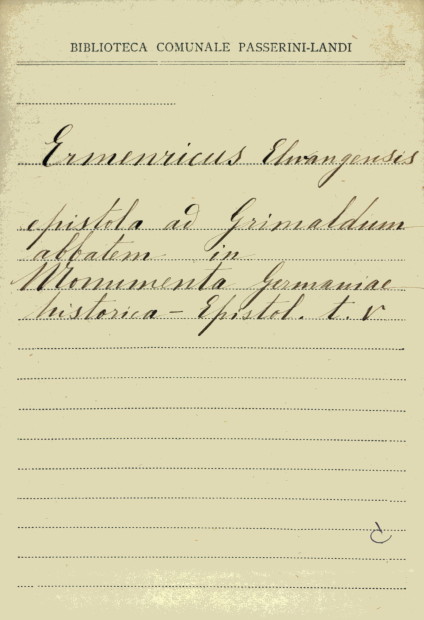 BIBLIOTECA COMUNALE PASSERINI-LANDI
Ermenricus Elwangensis
epistola ad Grimaldum
abbatem in
Monumenta Germaniae
historica - Epistol. t. V